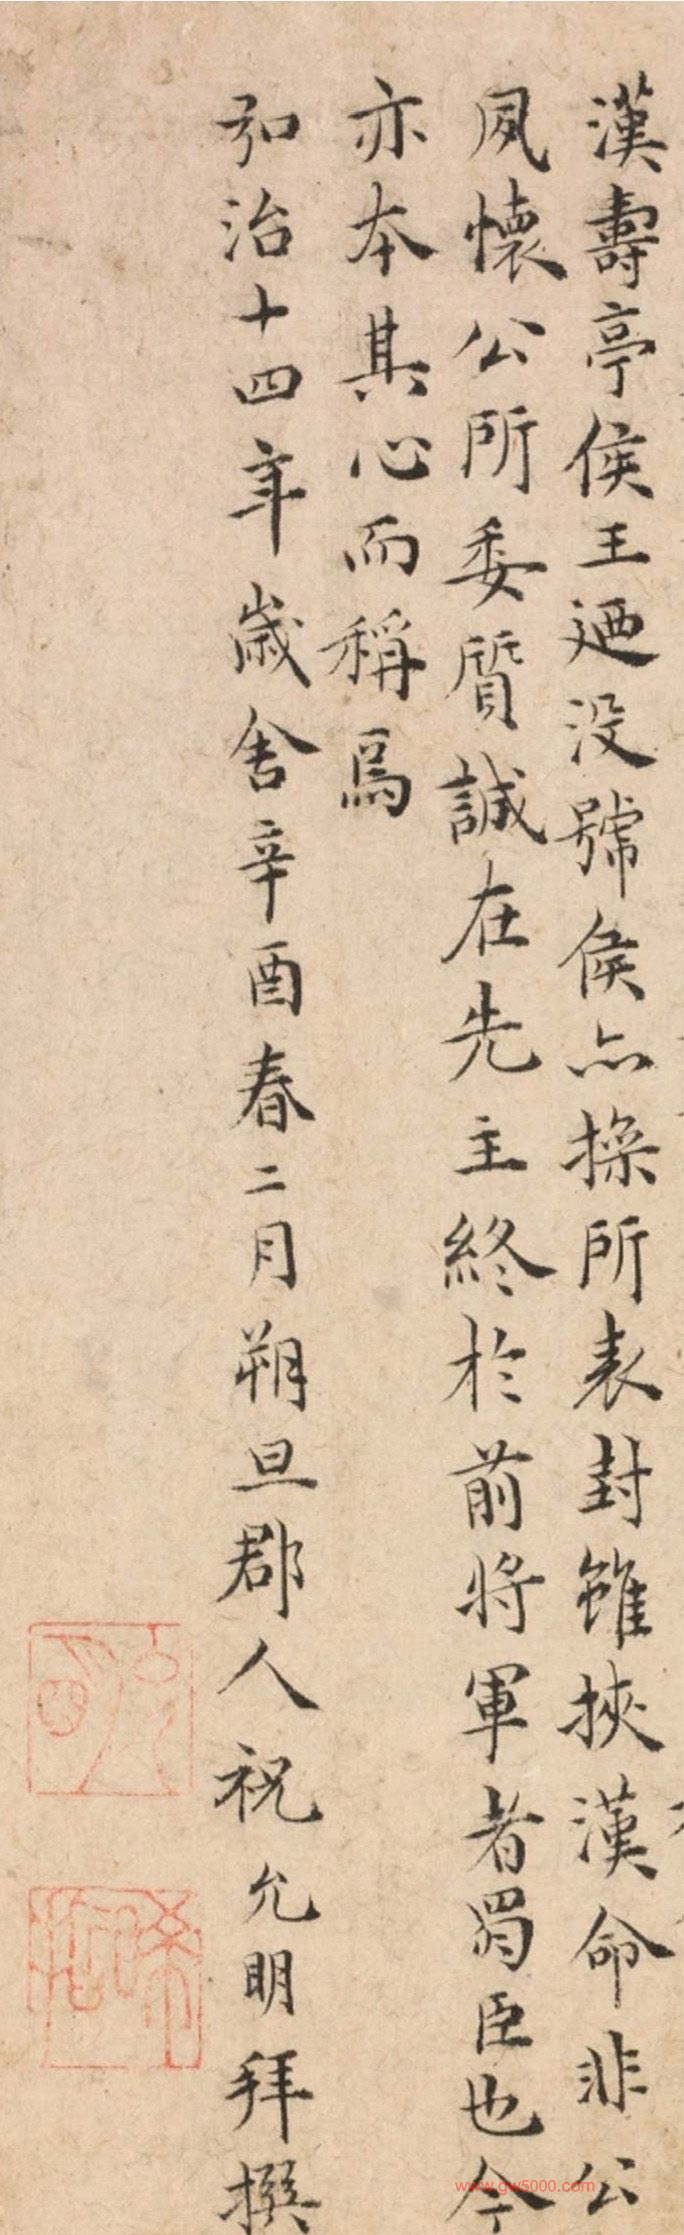 漢壽亭侯王廼没號侯亦操所表封雖挾漢命非公
夙懷公所委質誠在先主終於前將軍者蜀臣也今
亦本其心而稱焉
弘治十四年歲舍辛酉春二月朔旦郡人祝允明拜撰
www.gw5000.com